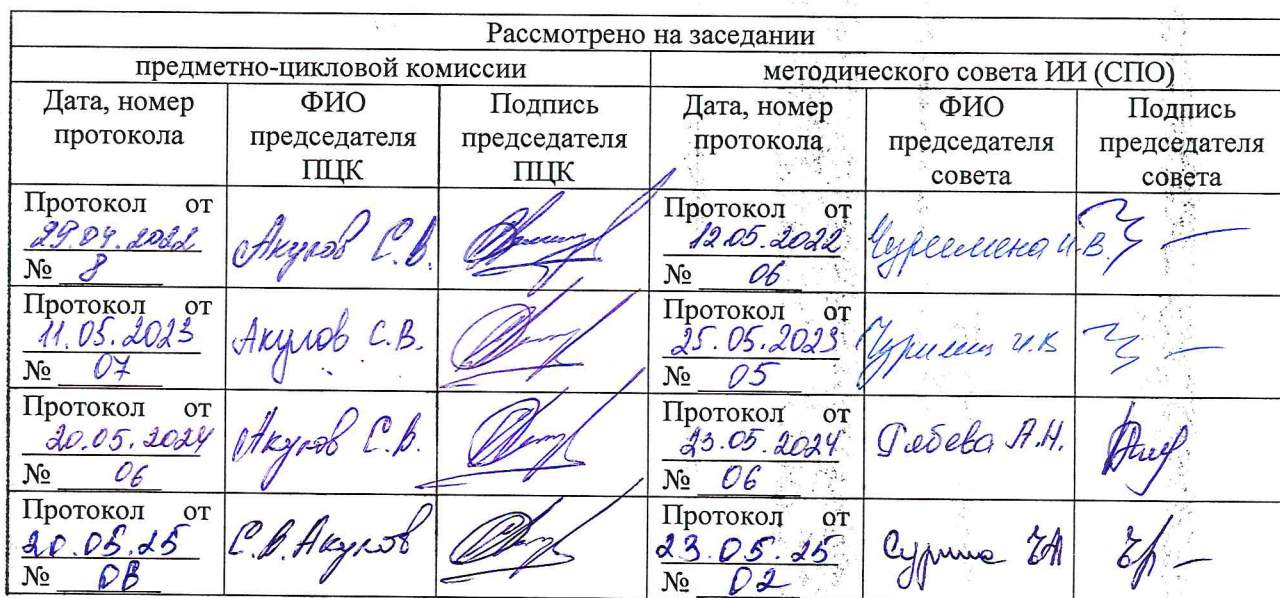 Рассмотрено на заседании
предметно-цикловой комиссии
методического совета ИИ (СПО)
Дата, номер протокола
ФИО председателя ПЦК
Подпись председателя ПЦК
Дата, номер протокола
ФИО председателя совета
Подпись председателя совета
Протокол от
29.04.2022
№ 8
Акулов С.В.
Протокол от
12.05.2022
№ 06
И.В.
Протокол от
11.05.2023
№ 07
Акулов С.В.
Протокол от
25.05.2023
№ 05
И.В
Протокол от
20.05.2024
№ 06
Акулов С.В.
Протокол от
23.05.2024
№ 06
А.Н.
Протокол от
20.05.25
№
С.В. Акулов
Протокол от
23.05.25
№ 02